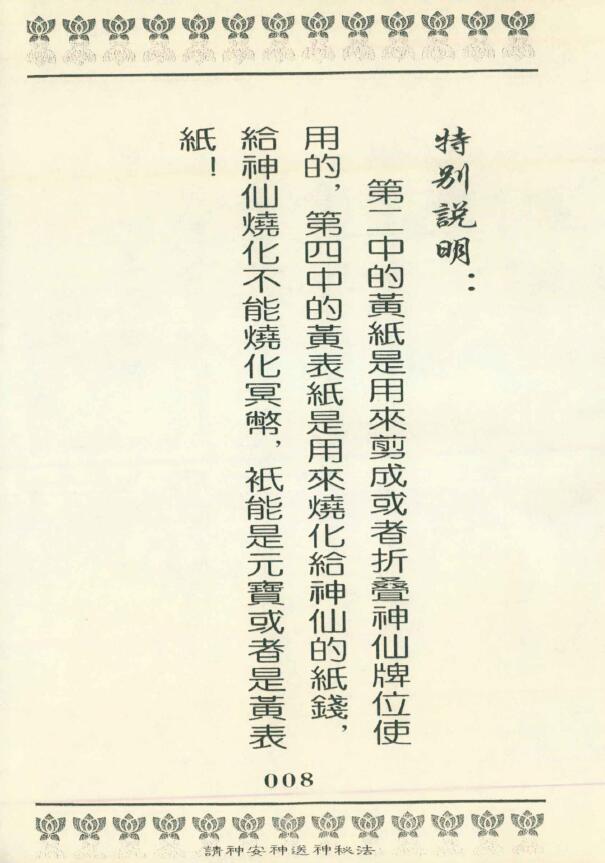 特别説明：
第二中的黃紙是用來剪成或者折叠神仙牌位使
用的，第四中的黃表紙是用來燒化給神仙的紙錢，
給神仙燒化不能燒化冥幣，祇能是元寶或者是黃表
紙！
008
請神安神送神秘法